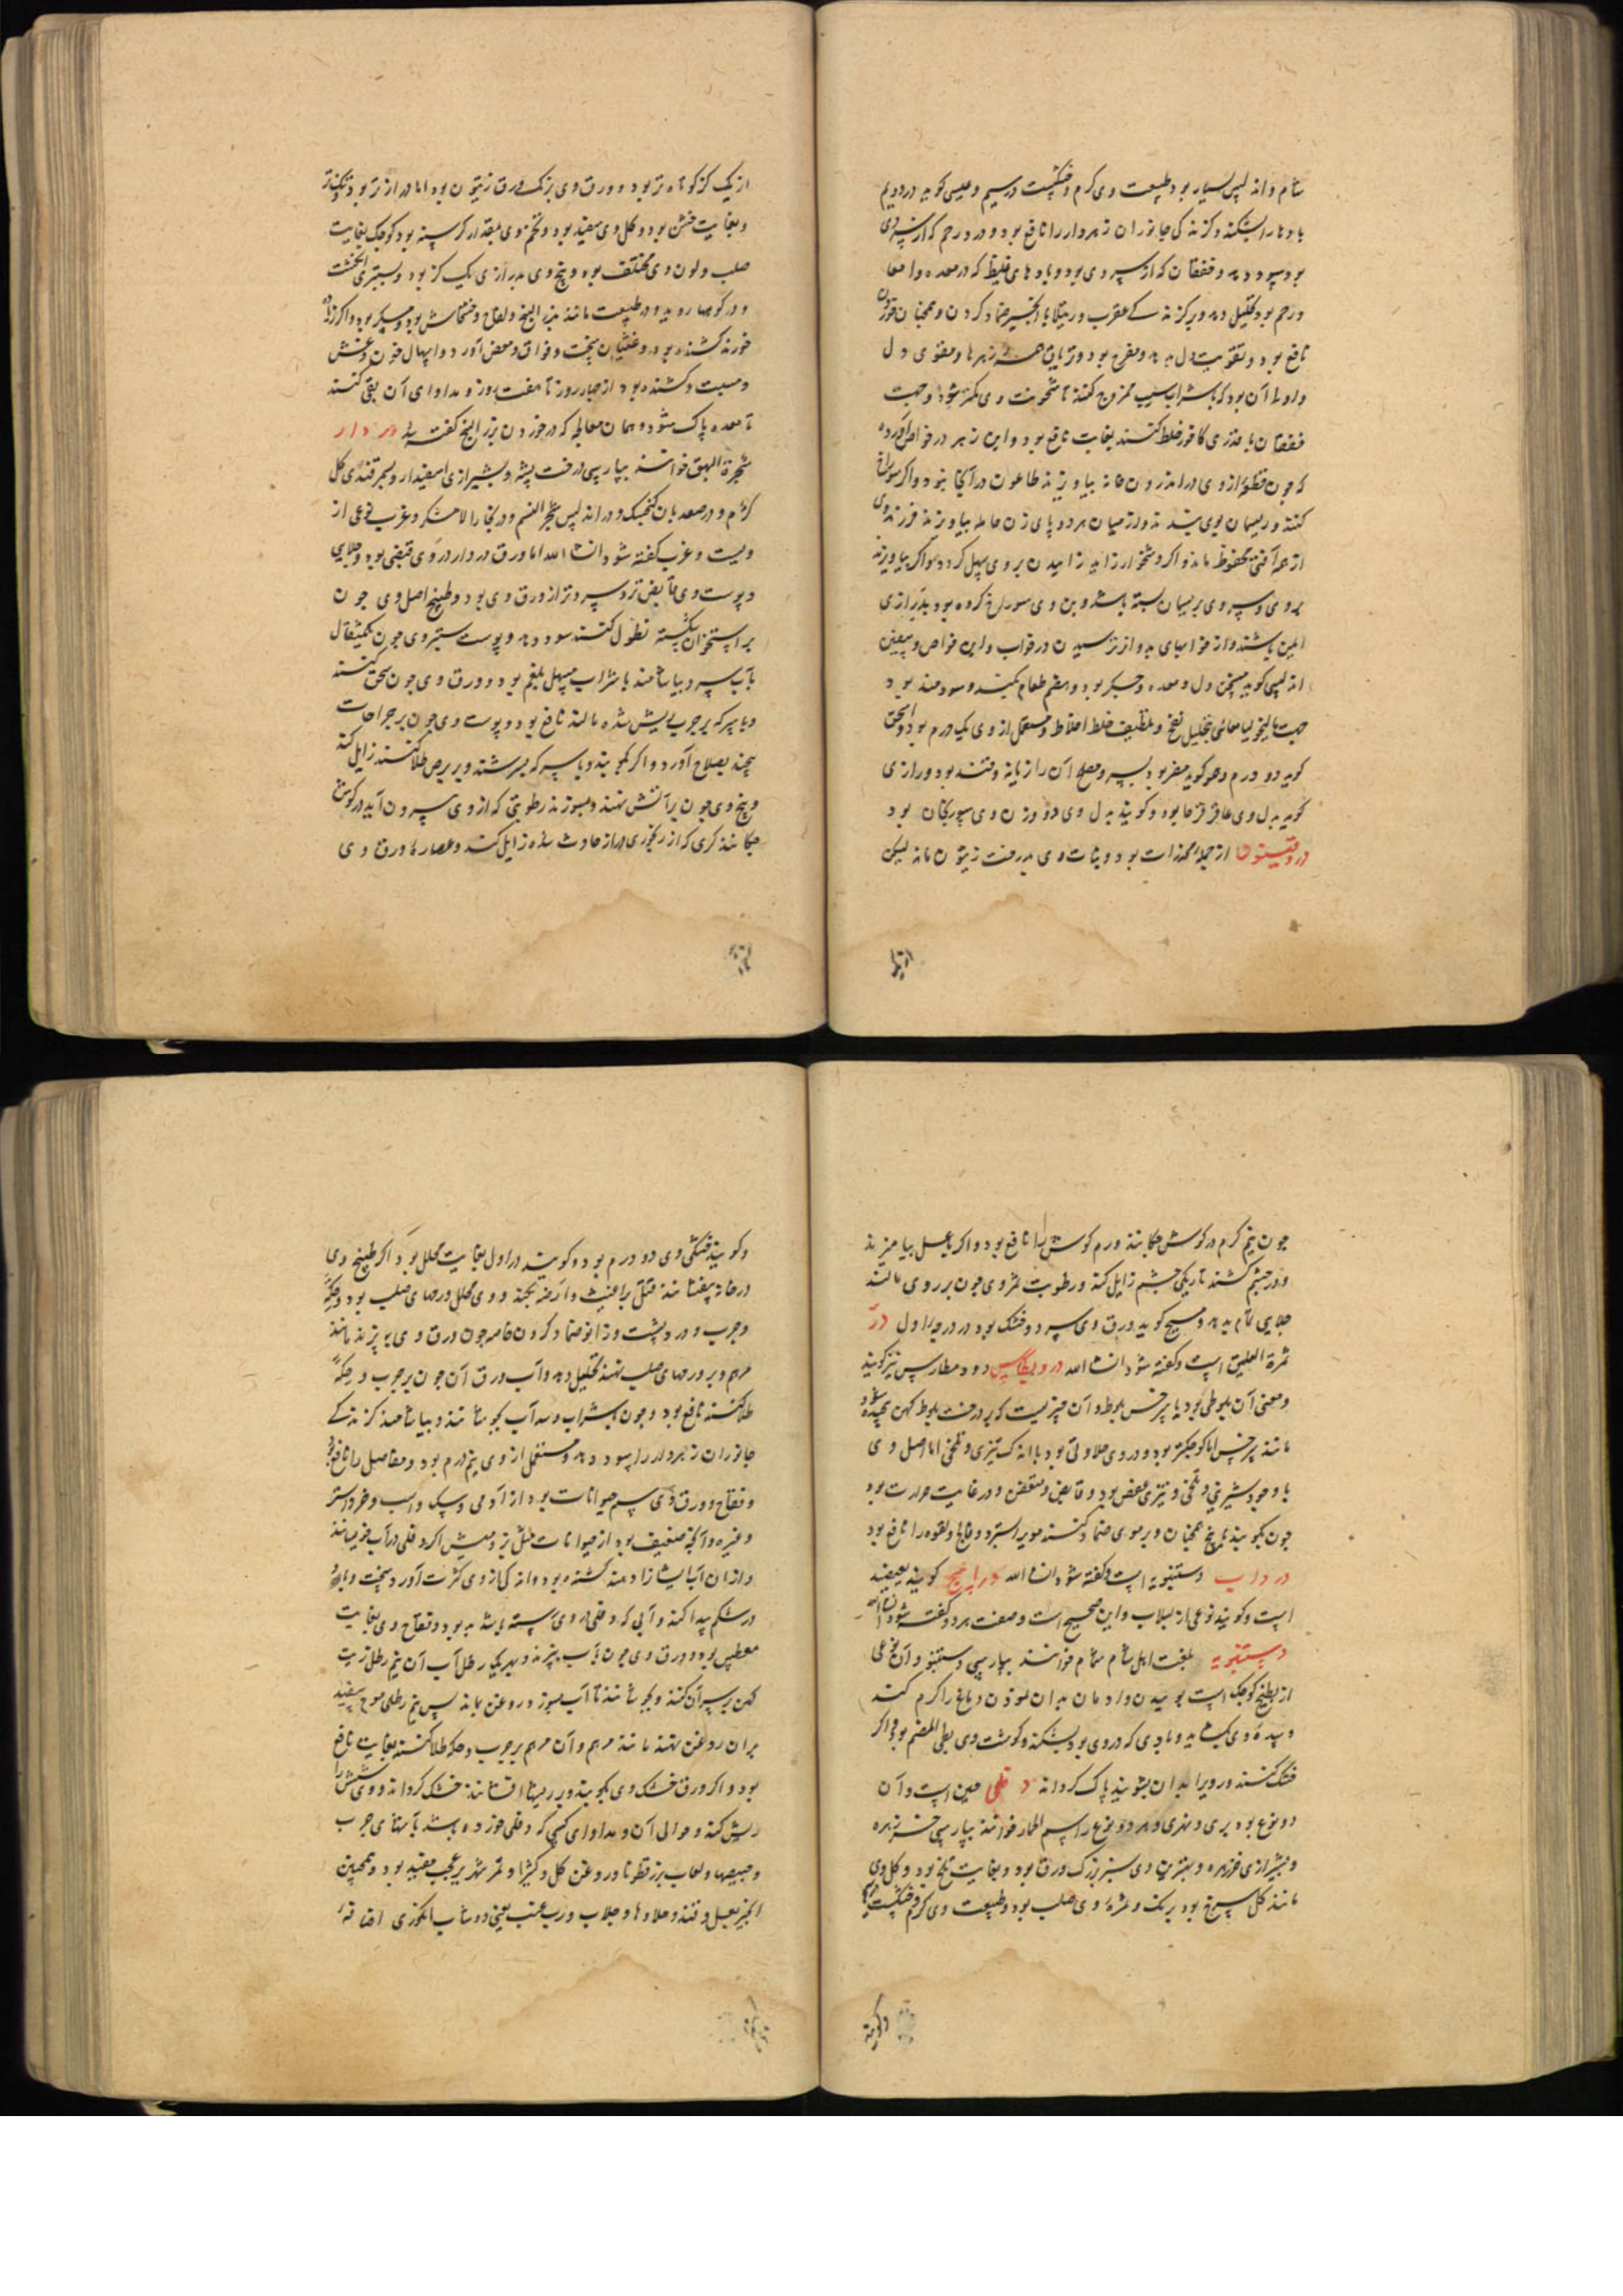 شام و اندلس بسیار بود طبیعت وی گرم و خشکست در سیم و عیسی گوید در دویم
بادها را بشکند و گزندگی جانوران زهردار را نافع بود و درد رحم که از سردی
بود سود دهد و خفقان که از سردی بود و بادهای غلیظ که در معده و امعا
و رحم بود تحلیل دهد و بر گزندگی عقرب و رتیلا با انجیر ضماد کردن و همچنان خوردن
نافع بود و تقویت دل بدهد و مفرح بود و تریاق همه زهرها و مقوی دل
و اولی آن بود که با شراب سیب ممزوج کنند تا سخونت وی کمتر شود و جهت
خفقان با قدری کافور خلط کنند بغایت نافع بود و این زهر در خواص آورده
که چون قطعه از وی در اندرون خانه بیاویزند طاعون در آنجا نبود و اگر سوراخ
کنند و ریسمان بوی بندند و در میان هر دو پای زن حامله بیاویزند فرزند وی
از همه آفتی محفوظ ماند و اگر دشخوار زاید زاییدن بر وی سهل گردد و اگر بیاویزند
بر وی و سر وی بریسمان بسته باشد و بن وی سوراخ کرده بود بدرازی
ایمن باشند و از خوابهای بد و از ترسیدن در خواب و این خواص و بیعین
اندلسی گوید مسخن دل و معده و جگر بود و هضم طعام بکند و سودمند بود
جهت مالیخولیا معائی بتحلیل نفخ و تلطیف غلظ اخلاط و مستعمل از وی یک درم بود و اسحق
گوید دو درم و هو گوید مضر بود بسر و مصلح آن رازیانه و قند بود و رازی
گوید بدل وی عاقرقرحا بود و گویند بدل وی دو وزن وی سورنجان بود
دروقنیون از جمله مخدرات بود و نبات وی بدرخت زیتون ماند لیکن
از یک
از یک گز کوتاه‌تر بود و ورق وی برنگ ورق زیتون بود اما درازتر بود و تنکتر
و بغایت خشن بود و گل وی سفید بود و تخم وی بمقدار کرسنه بود کوچک بغایت
صلب و لون وی مختلف بود و بیخ وی بدرازی یک گز بود و بستبری انگشت
و در کوهها روید و در طبیعت مانند بزر البنج و لفاح و خشخاش بود و مسکر بود و اگر زیاده
خورند کشنده بود و غثیان سخت و فواق و مغص آورد و اسهال خون و غشی
و مسبت و کشنده بود از چهار روز تا هفت روز و مداوای آن بقی کنند
تا معده پاک شود و همان معالجه که در خوردن بزر البنج گفته شد دردار
شجرة البق خوانند بپارسی درخت پشه و بشیرازی اسفیدار و بسمرقندی کل
کژم و در صعد بان کنجیک و در اندلس شجر النسم و در بخارا لامشکر و غرب نوعی از
ویست و غرب گفته شود ان شاء الله اما ورق دردار در وی قبضی بود و جلایی
و پوست وی قابض‌تر و سردتر از ورق وی بود و طبیخ اصل وی چون
بر استخوان شکسته نطول کنند سود دهد و پوست ستبر وی چون یکمثقال
بآب سرد بیاشامند یا شراب مسهل بلغم بود و ورق وی چون سحق کنند
و با سرکه بر جرب ریش شده مالند نافع بود و پوست وی چون بر جراحات
پیچند بصلاح آورد و اگر بکوبند و با سرکه بسرشند و بر برص طلا کنند زایل کند
و بیخ وی چون بر آتش نهند و بسوزند رطوبتی که از وی بیرون آید در گوش
چکانند کری که از رنجوری دراز حادث شده زایل کند و عصاره ورق وی
چون نیم گرم در گوش چکانند ورم گوش را نافع بود و اگر با عسل بیامیزند
و در چشم کشند تاریکی چشم زایل کند و رطوبت ثمر وی چون بر روی مالند
جلایی تمام بدهد و مسیح گوید ورق وی سرد و خشک بود در درجه اول در
ثمرة العلیق است و گفته شود ان شاء الله دروبطارس دودمطارس نیز گویند
و معنی آن بلوطی بود یا سرخس بلوط و آن چیزیست که بر درخت بلوط کهن پیچیده شود
مانند سرخس اما کوچکتر بود و در وی حلاوتی بود با اندک تیزی و تلخی اما اصل وی
با وجود شیرینی و تلخی و تیزی عفص بود و قابض و متعفن و در غایت حرارت بود
چون بکوبند با بیخ همچنان و بر موی ضماد کنند موی را بسترد و فالج و لقوه را نافع بود
درداب دستنبویه است و گفته شود ان شاء الله دراصیح گویند یعضید
است و گویند نوعی از لبلاب و این صحیح است و صفت هر دو گفته شود ان شاء الله
دستنبویه بلغت اهل شام شمام خوانند بپارسی دستنبو و آن نوعی
از بطیخ کوچک است بوییدن و ادمان بدان نمودن دماغ را گرم کند
و سده وی بگشاید و بادی که در وی بود بشکند و گوشت وی بطی الهضم بود و اگر
خشک کنند و روی را بدان بشویند پاک گرداند دفلی حبن است و آن
دو نوع بود بری و نهری و هر دو نوع را سم الحمار خوانند بپارسی خرزهره
و بشیرازی خرزهره و بهترین وی سبز بزرگ ورق بود و بغایت تلخ بود و گل وی
مانند گل سرخ بود برنگ و ثمره وی صلب بود و طبیعت وی گرم و خشکست در سیم
و گویند
و گویند خشکی وی دو درم بود و گویند در اول بغایت محلل بود و اگر طبیخ وی
در خانه بیفشانند قتل براغیث و ارضه بکند و وی محلل ورمهای صلب بود و حکه
و جرب و درد پشت و زانو ضماد کردن خاصه چون ورق وی بپزند مانند
مرهم و بر ورمهای صلب نهند تحلیل دهد و آب ورق آن چون بر جرب و حکه
طلا کنند نافع بود و چون با شراب و سداب بجوشانند و بیاشامند گزندگی
جانوران زهردار را سود دهد و مستعمل از وی نیم درم بود و مفاصل را نافع بود
و فقاح و ورق وی سم حیوانات بود از آدمی و سگ و اسب و خر و استر
و غیره و آنچه ضعیف بود از حیوانات مثل بز و میش اگر دفلی در آب خیسانند
و از ان آب ایشان را دهند کشنده بود و اندکی از وی کرب آورد و سخت و باد
در شکم پیدا کند و آبی که دفلی در وی رسته باشد بد بود و فقاح وی بغایت
معطس بود و ورق وی چون بآب بپزند و بهر یک چهار رطل آب آن نیم رطل زیت
کهن بر سر آن کنند و بجوشانند تا آب بسوزد و روغن بماند پس نیم رطل موم سفید
بر ان روغن نهند مانند مرهم و آن مرهم بر جرب و حکه طلا کنند بغایت نافع
بود و اگر ورق خشک وی بکوبند و بر ریشها افشانند خشک گرداند و وی شش را
ریش کند و حوالی آن و مداوای کسی که دفلی خورده باشد بآشهای چرب
و خبیصها و لعاب بزر قطونا و روغن گل و کتیرا و ثمر شهریز عجب مفید بود و همچنین
انجیر بعسل و قند و حلاوها و جلاب و رب عنب یعنی دوشاب انگوری افاقه